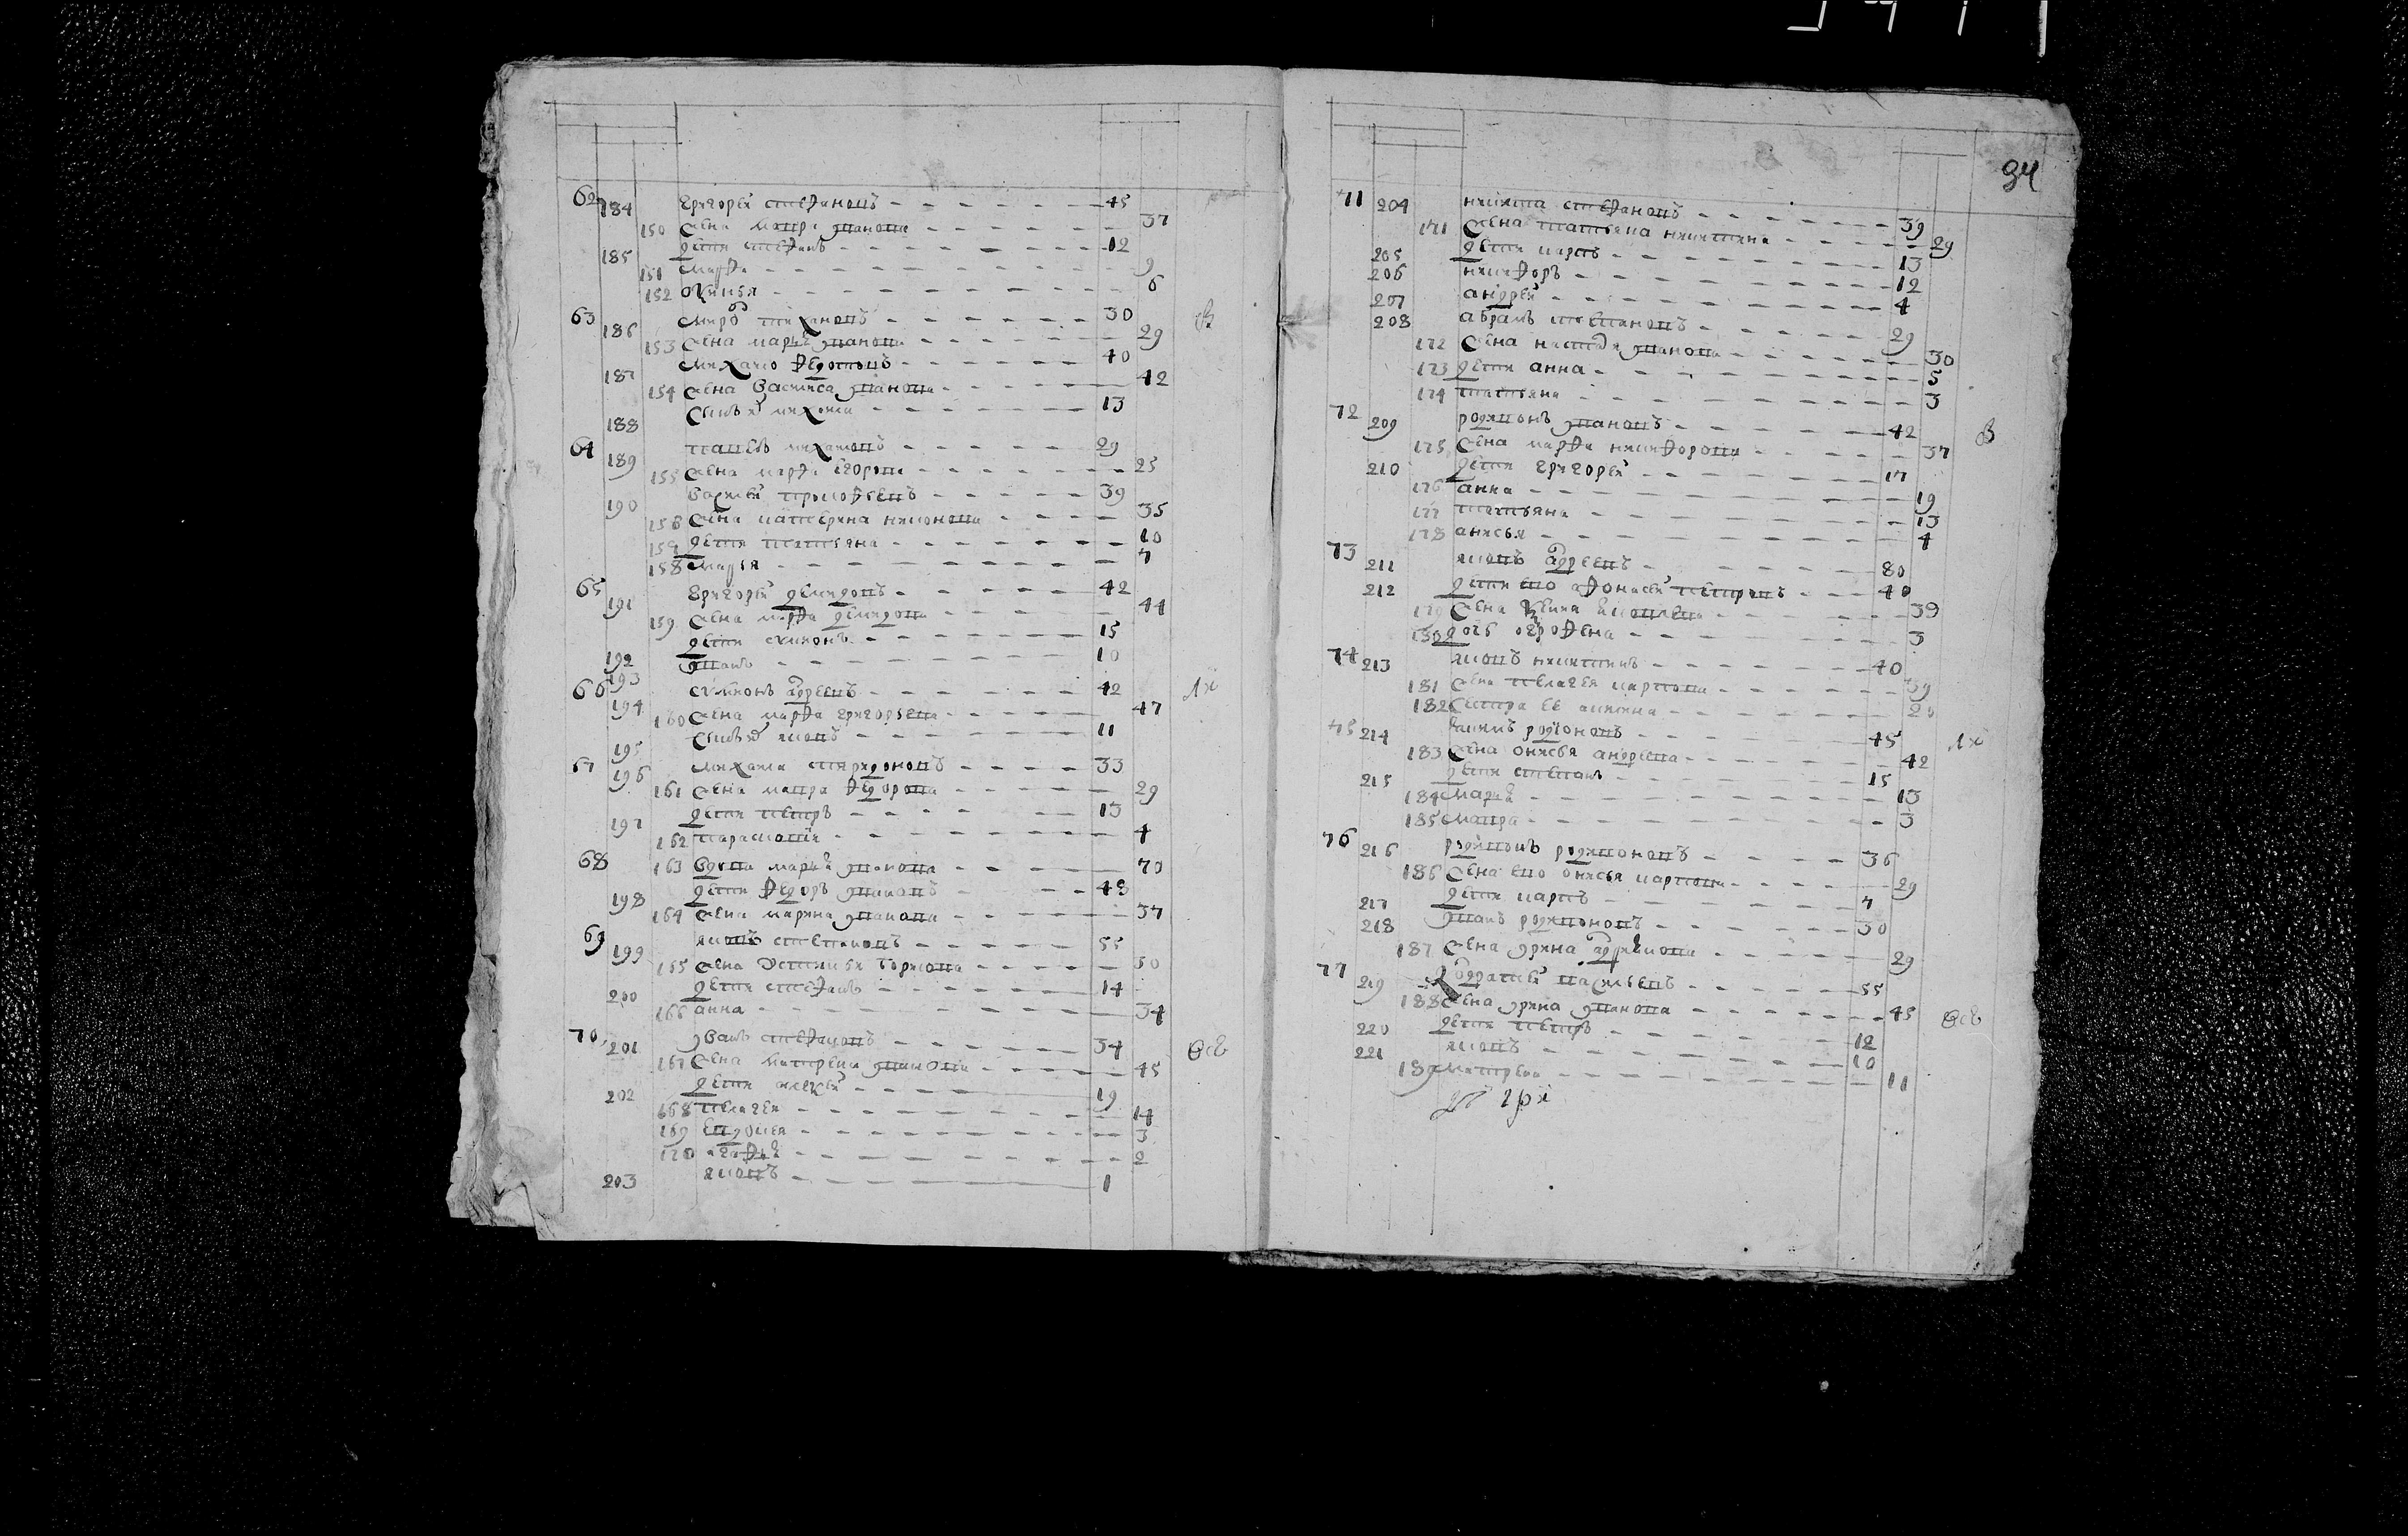 62 184 григорей стефановъ 45
150 жена мавра иванова 37
185 дети стефанъ 12
151 марфа 9
152 окинья 6
63 186 30
153 жена марья иванова 29
187 михаило федотовъ 40
154 жена василиса иванова 42
188 сынъ ево михаила 13
64 189 павелъ михаиловъ 29
155 жена марфа егорова 25
190 василей тимофеевъ 39
156 жена катерина никонова 35
159 дети татьяна 10
158 марья 7
65 191 григорей демидовъ 42
159 жена марфа демидова 44
192 дети симионъ 15
193 иванъ 10
66 194 симионъ андреевъ 42
160 жена марфа григорьева 47
195 сынъ ево яковъ 11
67 196 михаила спиридоновъ 33
161 жена мавра федорова 29
197 дети петръ 13
162 парасковия 4
68 163 вдова марья иванова 70
198 дети федоръ ивановъ 43
164 жена марина иванова 37
69 199 яковъ степановъ 55
165 жена устинья борисова 50
200 дети стефанъ 14
166 анна 34
70 201 иванъ стефановъ 34
167 жена матрена иванова 45
202 дети алексей 19
168 пелагея 14
169 евдокея 3
170 агафья 2
203 яковъ 1
94
71 204 никита стефановъ 39
171 жена татьяна никитина 29
205 дети карпъ 13
206 никифоръ 12
207 андрей 4
208 абрамъ степановъ 29
172 жена настасья иванова 30
173 дети анна 5
174 татьяна 3
72 209 родионъ ивановъ 42
175 жена марфа никифорова 37
210 дети григорей 17
176 анна 19
177 татьяна 13
178 анисья 4
73 211 яковъ андреевъ 80
212 дети ево афонасей петровъ 40
179 жена яковлева 39
180 дочь 3
74 213 яковъ никитинъ 40
181 жена пелагея карпова 39
182 сестра ее акилина 20
75 214 родионовъ 45
183 жена онисья андреева 42
215 дети степанъ 15
184 марья 13
185 мавра 3
76 216 родионъ родионовъ 36
186 жена ево онисья карпова 29
217 дети карпъ 7
218 иванъ родионовъ 30
187 жена ирина 29
77 219 кодратей васильевъ 55
188 жена ирина иванова 45
220 дети петръ 12
221 яковъ 10
189 матрена 11